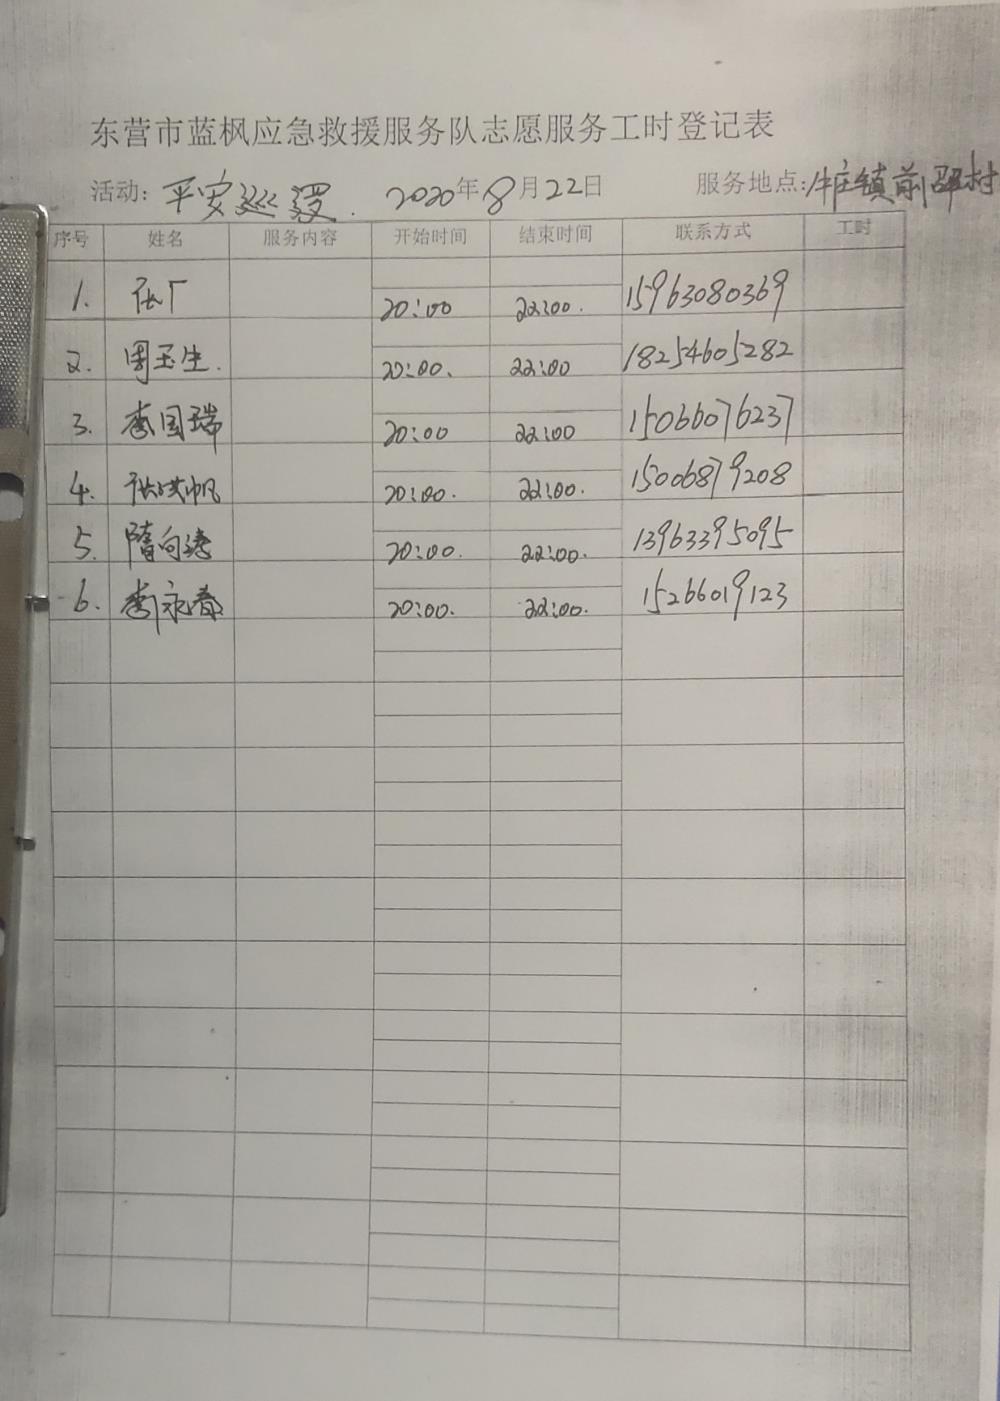 东营市蓝枫应急救援服务队志愿服务工时登记表
活动：平安巡逻. 2020年8月22日 服务地点：牛庄镇前邵村
序号 姓名 服务内容 开始时间 结束时间 联系方式 工时
1. 张广 20:00 22:00. 15963080369
2. 周玉生. 20:00. 22:00 18254605282
3. 李国瑞 20:00 22:00 15066076237
4. 张洪帆 20:00. 22:00. 15006879208
5. 隋向涛 20:00. 22:00. 13963395095
6. 李永春 20:00. 22:00. 15266019123